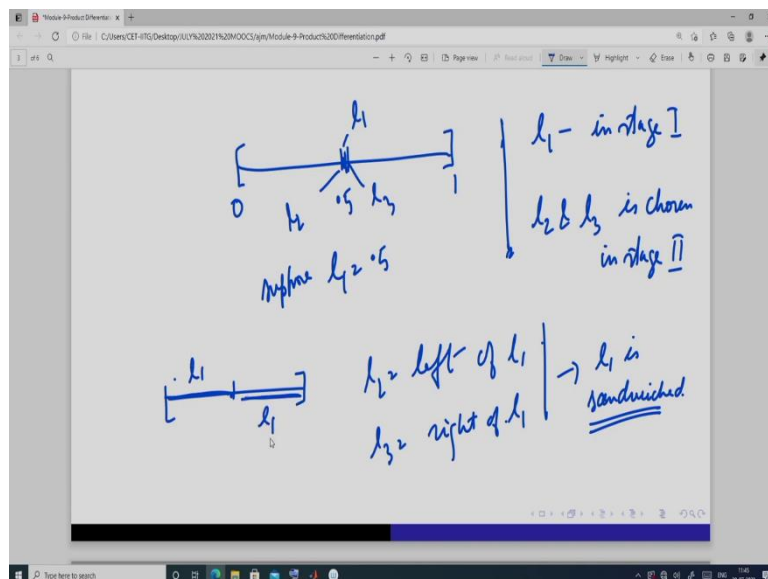 *Module-9-Product Differentiat
File | C:/Users/CET-IITG/Desktop/JULY%202021%20MOOCS/ajm/Module-9-Product%20Differentiation.pdf
of 6
Page view
Read aloud
Draw
Highlight
Erase
l₁
0
l₂
.5
l₃
1
suppose l₁ = .5
l₁ – in stage I
l₂ & l₃ is chosen
in stage II
l₁
l₁
l₂ = left of l₁
l₃ = right of l₁
→ l₁ is
sandwiched
Type here to search
ENG
11:45